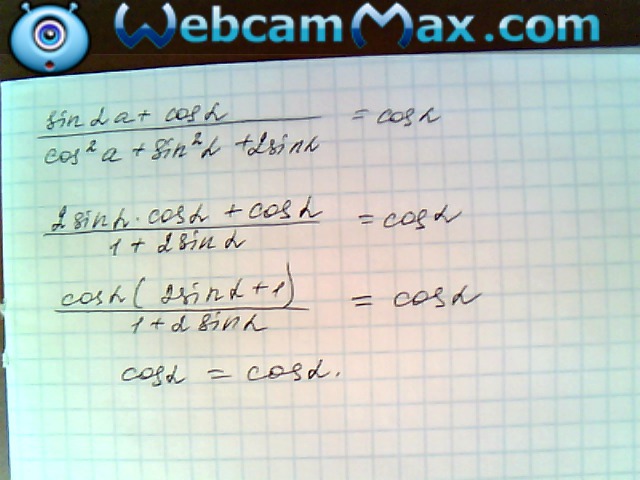 WebcamMax.com
sin 2a + cos α / cos² a + sin² α + 2 sin α = cos α
2 sin α · cos α + cos α / 1 + 2 sin α = cos α
cos α ( 2 sin α + 1 ) / 1 + 2 sin α = cos α
cos α = cos α.